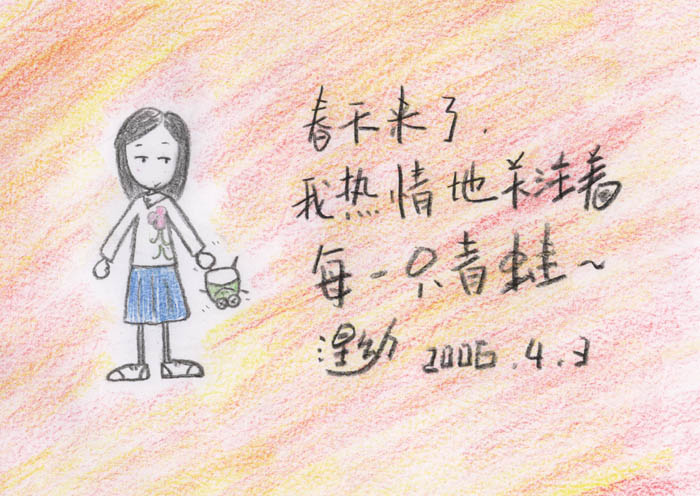 春天来了.
我热情地关注着
每一只青蛙~
2006.4.3